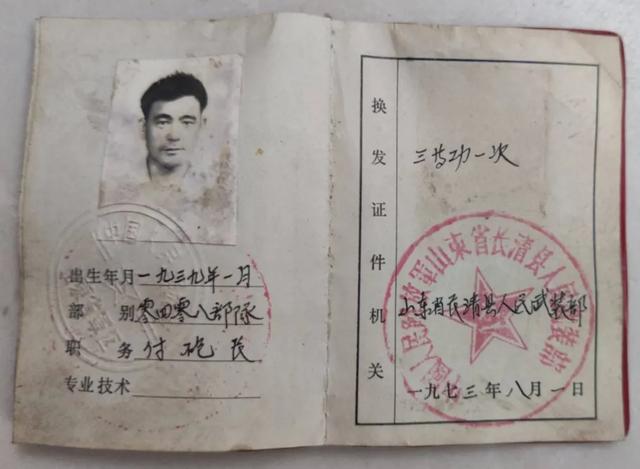 出生年月一九三九年一月
部别零四零八部隊
职务付砲长
专业技术
换发证件机关
三等功一次
中国人民解放軍山东省长清县人民武装部
山东省长清县人民武装部
一九七三年八月一日